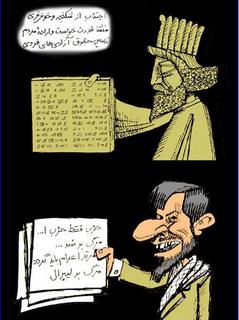 اجتناب از شکنجه و خونریزی
منشا قدرت خواست و اراده مردم
حقوق آزادی های فردی
حزب فقط حزب ا...
مرگ بر ضد ...
مرتد اعدام باید گردد
مرگ بر لیبرال